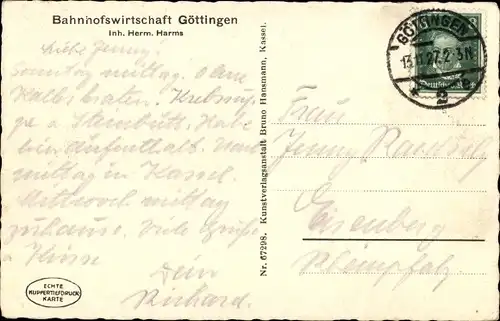 Bahnhofswirtschaft Göttingen
Inh. Herm. Harms
Liebe Jenny!
Sonntag mittag. Ohne
Kalbsbraten. Krebssup-
pe u. Steinbutt. Habe
hier Aufenthalt.
mittag in Kassel.
Mittwoch mittag
zuhause. Viele Grüße
u. Küsse
Dein
Richard.
ECHTE
KUPFERTIEFDRUCK
KARTE
Nr. 67298. Kunstverlagsanstalt Bruno Hansmann, Kassel.
GÖTTINGEN
2-3N
2
Frau
Jenny
Eisenberg
Rheinpfalz.